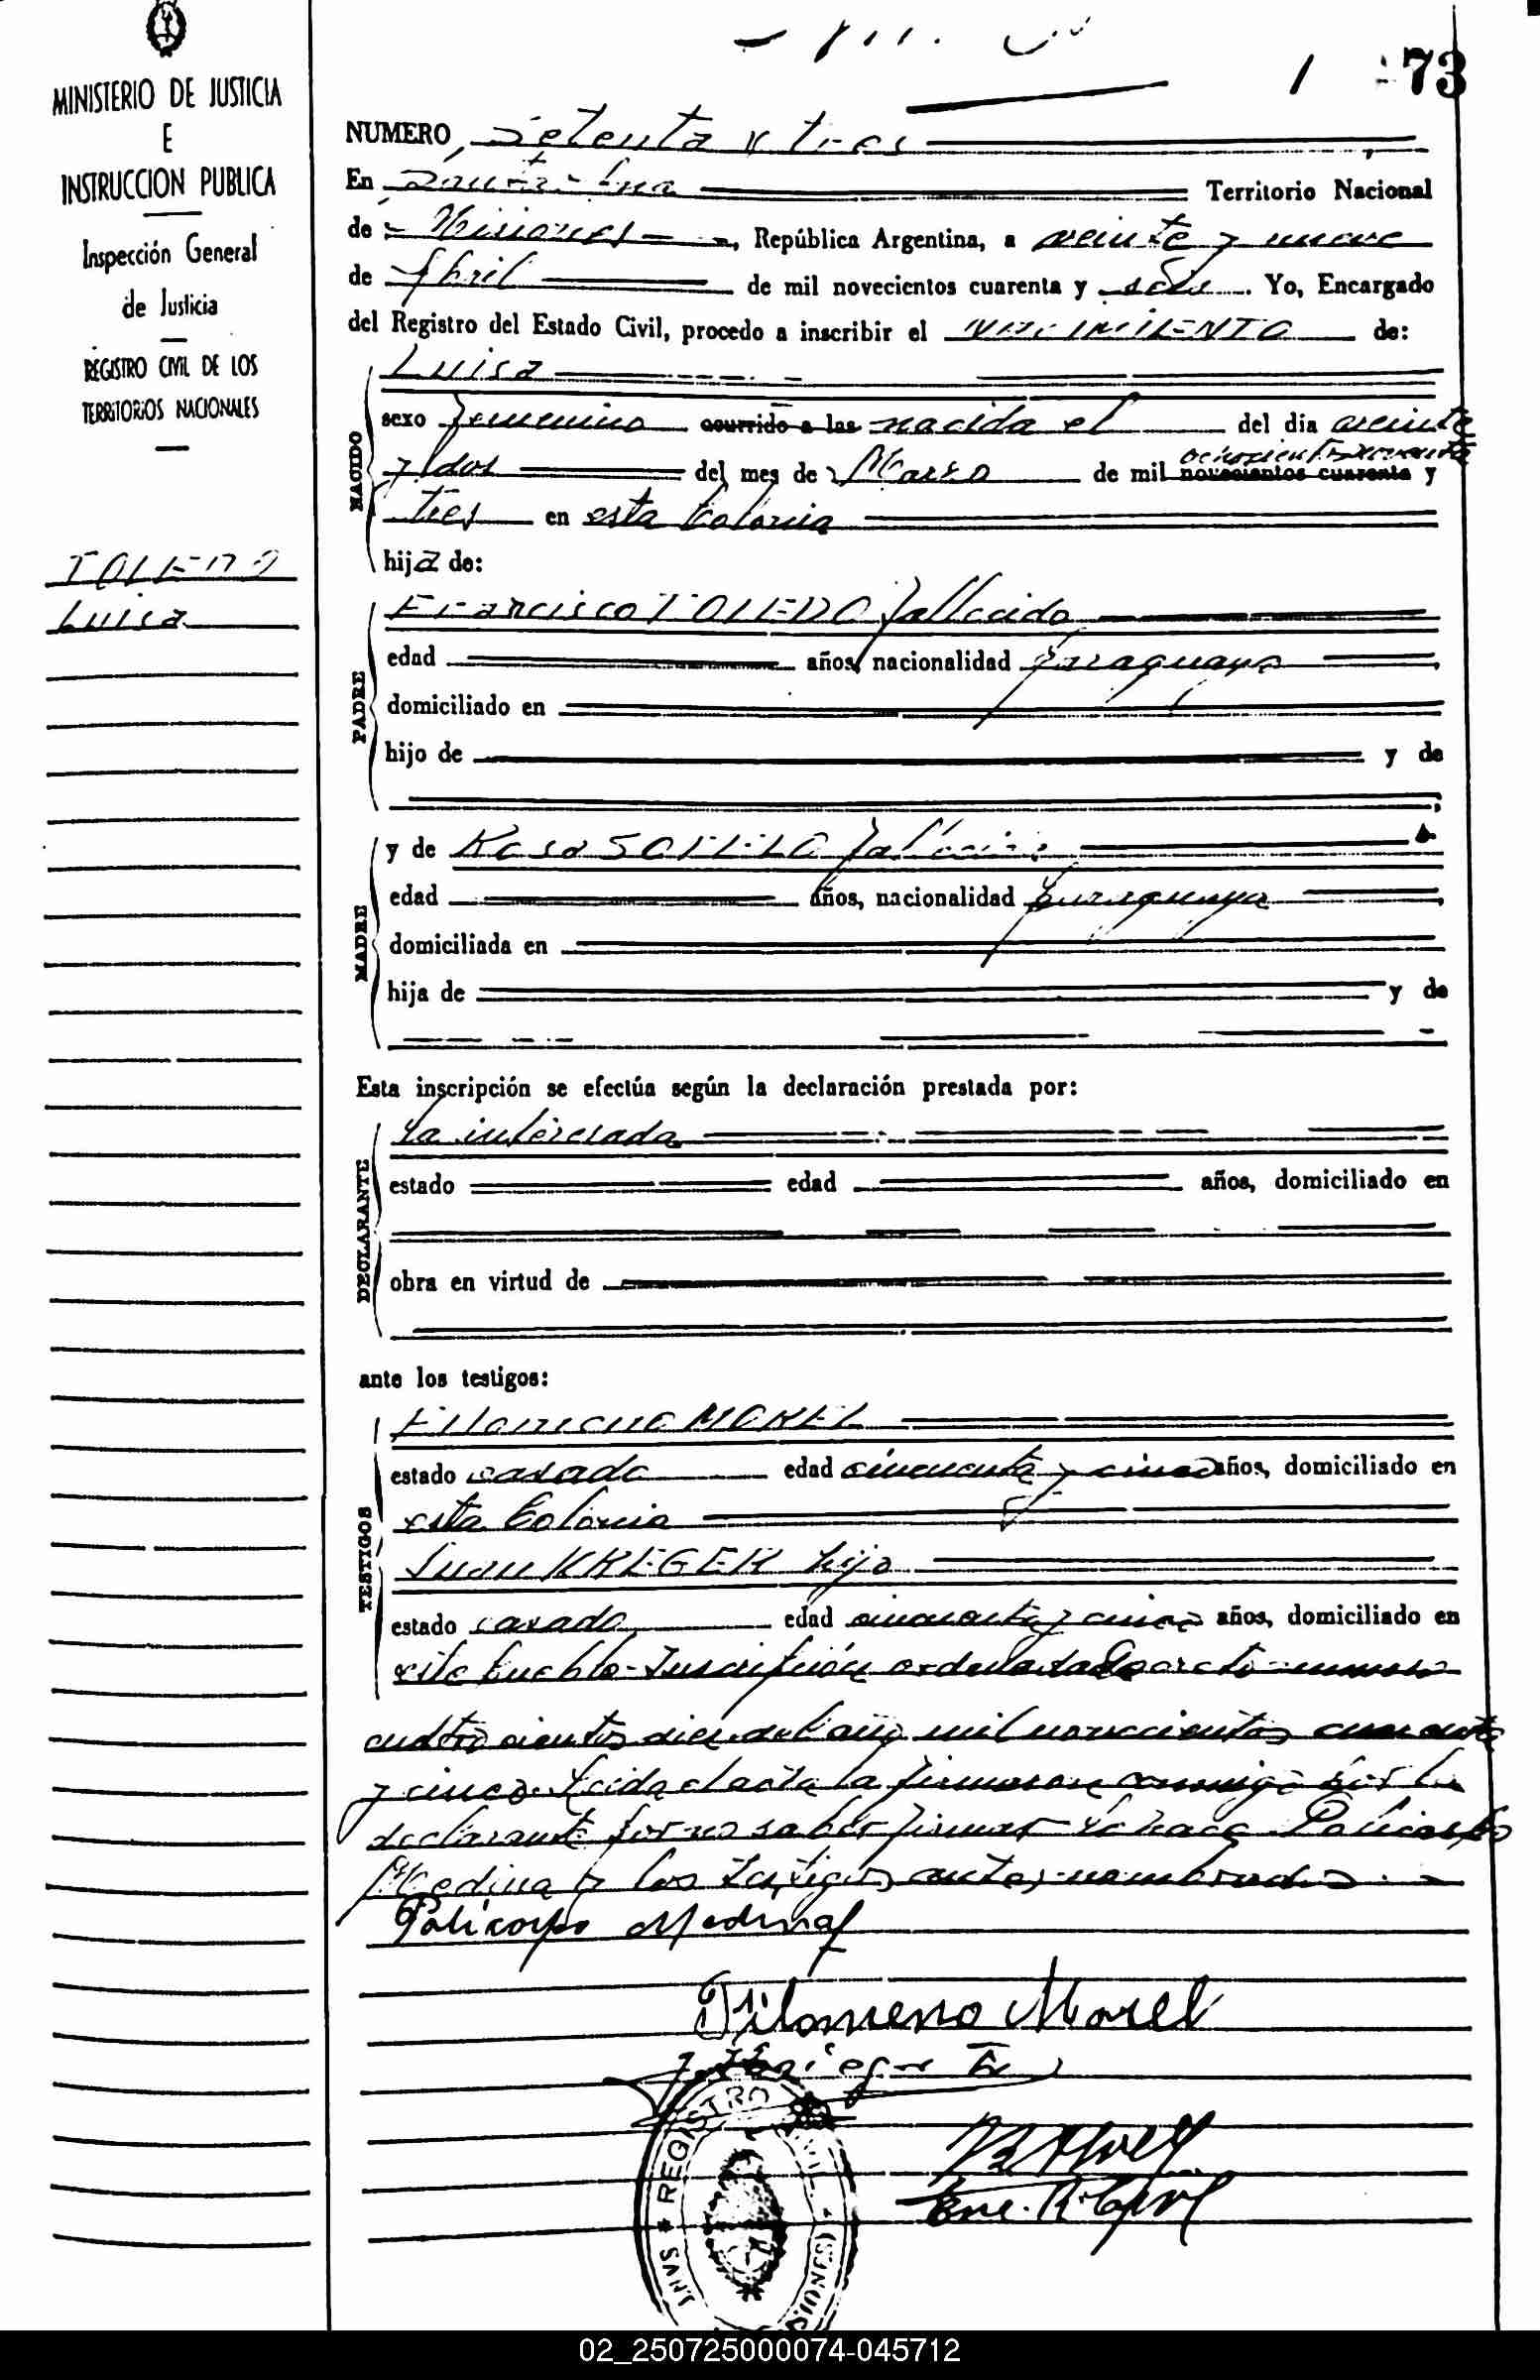 1 73
MINISTERIO DE JUSTICIA
E
INSTRUCCION PUBLICA
Inspección General
de Justicia
REGISTRO CIVIL DE LOS
TERRITORIOS NACIONALES
TOLEDO
Luisa
NUMERO Setenta y tres
En Santa Ana Territorio Nacional
de Misiones, República Argentina, a veinte y nueve
de Abril de mil novecientos cuarenta y seis. Yo, Encargado
del Registro del Estado Civil, procedo a inscribir el NACIMIENTO de:
NACIDO
Luisa
sexo femenino ocurrido a las nacida el del dia veinte
y dos del mes de Marzo de mil novecientos cuarenta ochocientos noventa y
tres en esta Colonia
hija de:
PADRE
Francisco TOLEDO fallecido
edad años, nacionalidad paraguaya
domiciliado en
hijo de y de
MADRE
y de Rosa SOTELO fallecida
edad años, nacionalidad paraguaya
domiciliada en
hija de y de
Esta inscripción se efectúa según la declaración prestada por:
DECLARANTE
La interesada
estado edad años, domiciliado en
obra en virtud de
ante los testigos:
TESTIGOS
Filomeno MOREL
estado casado edad cincuenta y cinco años, domiciliado en
esta Colonia
Juan KREGER hijo
estado casado edad cincuenta y cinco años, domiciliado en
este Pueblo-Inscripción ordenada Decreto numero
cuatro cientos diez del año mil novecientos cuarenta
y cinco. Leida el acta la firmaron conmigo por la
declarante por no saber firmar lo hace Policarpo
Medina y los testigos antes nombrados. -
Policarpo Medina
Filomeno Morel
Enc. R. Civil
REGISTRO CIVIL
02_250725000074-045712